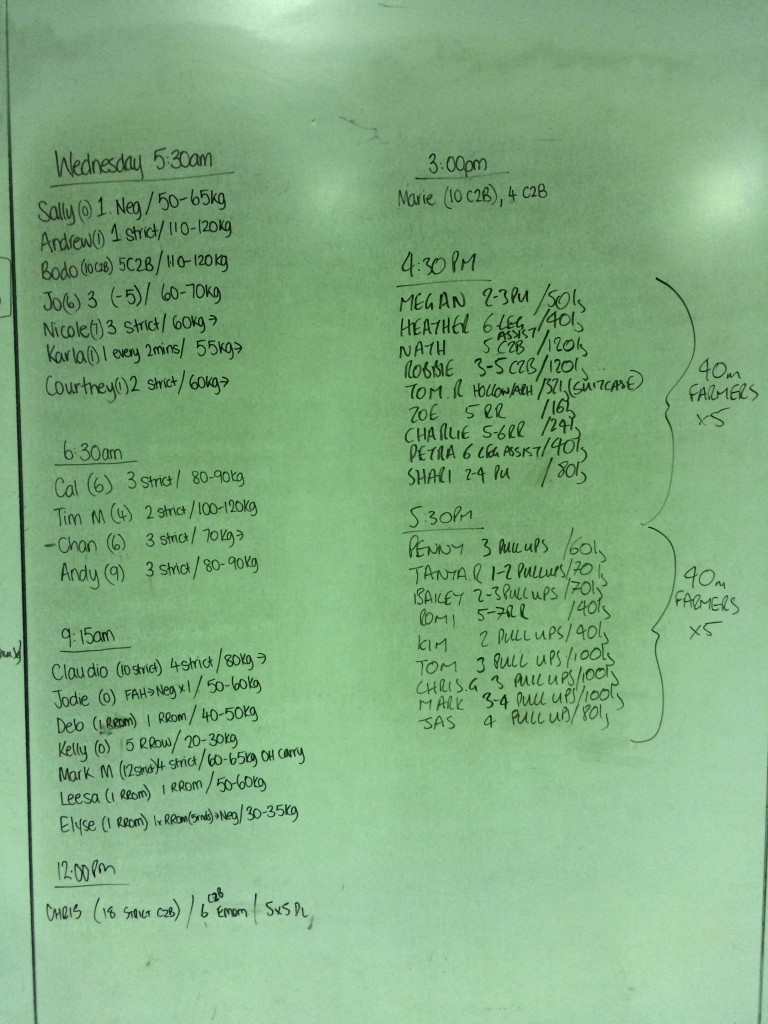 Wednesday 5:30am
Sally (0) 1. Neg / 50-65kg
Andrew (1) 1 strict / 110-120kg
Bodo (10 C2B) 5 C2B / 110-120kg
Jo (6) 3 (-5) / 60-70kg
Nicole (7) 3 strict / 60kg→
Karla (1) 1 every 2mins / 55kg→
Courtney (1) 2 strict / 60kg→
6:30am
Cal (6) 3 strict / 80-90kg
Tim M (4) 2 strict / 100-120kg
-Chan (6) 3 strict / 70kg→
Andy (9) 3 strict / 80-90kg
9:15am
Claudio (10 strict) 4 strict / 80kg→
Jodie (0) FAH→Neg x 1 / 50-60kg
Deb (1 RROM) 1 RROM / 40-50kg
Kelly (0) 5 RRow / 20-30kg
Mark M (12 strict) 4 strict / 60-65kg OH carry
Leesa (1 RROM) 1 RROM / 50-60kg
Elyse (1 RROM) 1x RROM (5rnds)→Neg / 30-35kg
12:00pm
CHRIS (18 STRICT C2B) / 6 C2B Emom / 5x5 DL
3:00pm
Marie (10 C2B), 4 C2B
4:30PM
MEGAN 2-3PU / 50kg
HEATHER 6 LEG ASSIST / 40kg
NATH 5 C2B / 120kg
ROBBIE 3-5 C2B / 120kg
TOM.R HOLLOW/ARH / 32kg (SUITCASE)
ZOE 5 RR / 16kg
CHARLIE 5-6RR / 24kg
PETRA 6 LEG ASSIST / 40kg
SHARI 2-4 PU / 80kg
40m FARMERS x5
5:30PM
PENNY 3 PULL UPS / 60kg
TANYA.R 1-2 PULLUPS / 70kg
BAILEY 2-3 PULL UPS / 70kg
ROMI 5-7RR / 40kg
KIM 2 PULL UPS / 40kg
TOM 3 PULL UPS / 100kg
CHRIS.G 3 PULL UPS / 100kg
MARK 3-4 PULL UPS / 100kg
JAS 4 PULL UPS / 80kg
40m FARMERS x5